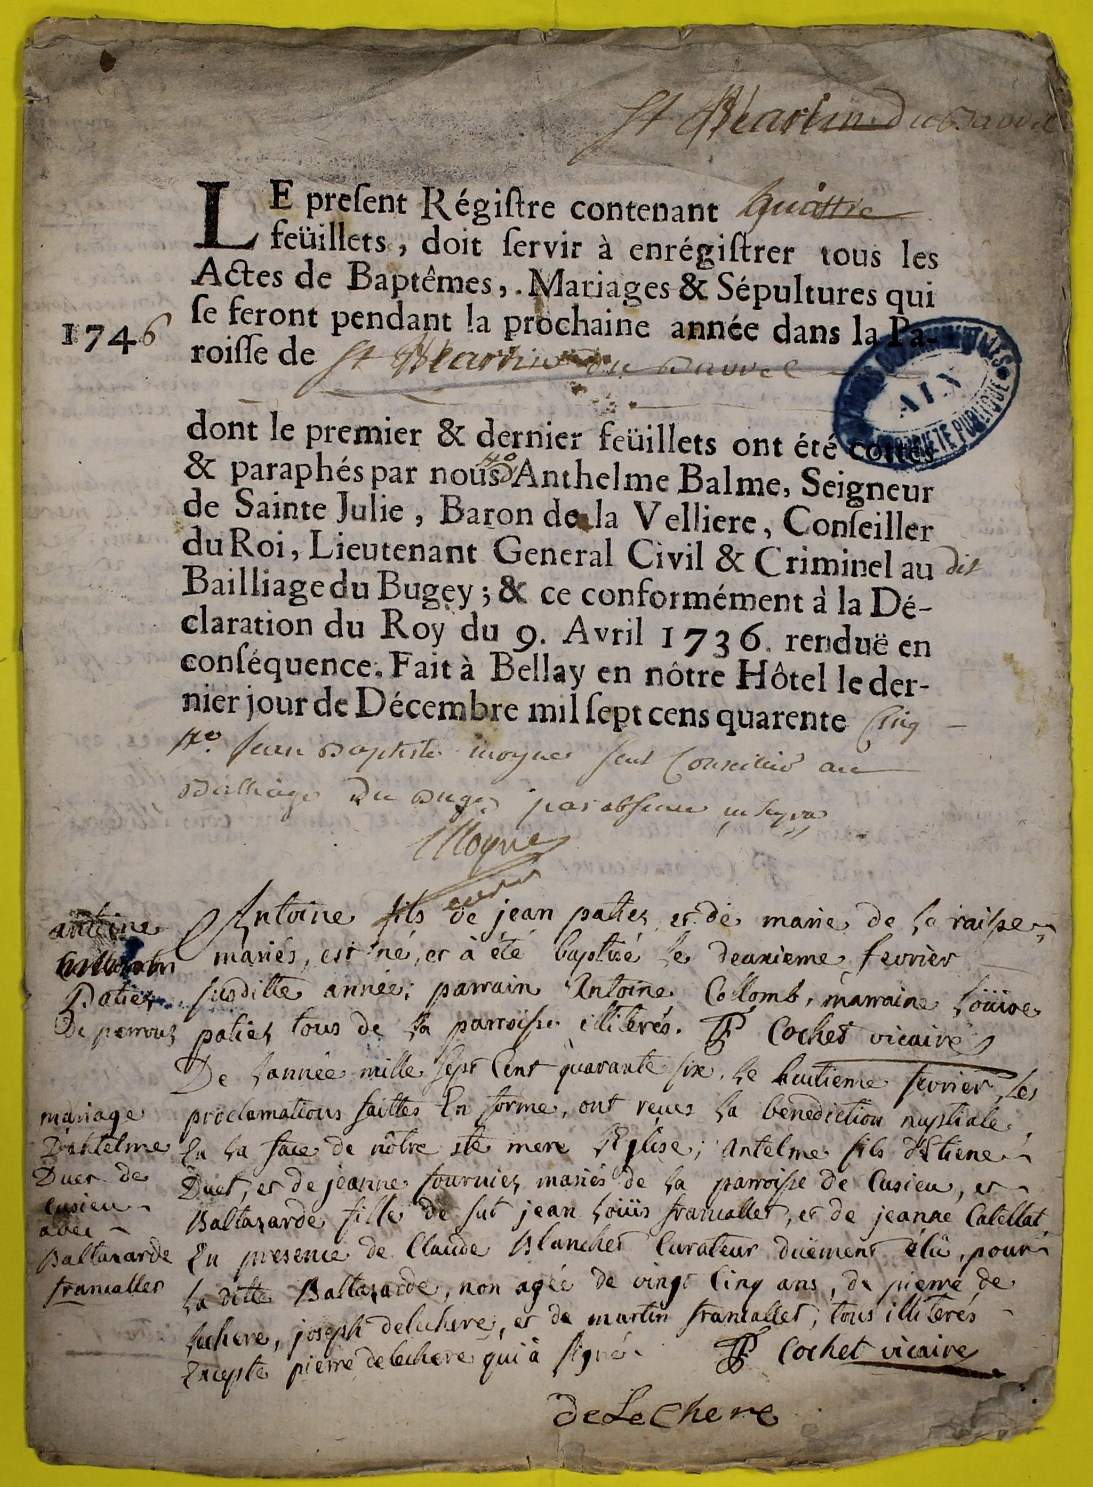 St Martin du Bavvel
LE preſent Régiſtre contenant quattre
feüillets, doit ſervir à enrégiſtrer tous les
Actes de Baptêmes, Mariages & Sépultures qui
ſe feront pendant la prochaine année dans la Pa-
1746
roiſſe de St Martin du Bavvel
AIN
PROPRIETE PUBLIQUE
dont le premier & dernier feüillets ont été cottés
& paraphés par nous Anthelme Balme, Seigneur
de Sainte Julie, Baron de la Velliere, Conſeiller
du Roi, Lieutenant General Civil & Criminel au dit
Bailliage du Bugey; & ce conformément à la Dé-
claration du Roy du 9. Avril 1736. renduë en
conſéquence. Fait à Bellay en nôtre Hôtel le der-
nier jour de Décembre mil ſept cens quarente Cinq
Jean Baptiste moyne seul Conseiller au
Balliage Du Bugey par absence
Moyne
antoine
Patiez
De perrouz
Antoine fils de jean patiez, et de marie de la raisse
mariés, est né, et à été baptisé le deuxieme fevrier
susditte année; parrain Antoine Collomb, marraine Loüise
patiez tous de la parroisse illiterés. Cochet vicaire
De l'année mille sept Cent quarante six, le huitieme fevrier, les
mariage
D'antelme
Duet de
Cusieu
avec
Baltazarde
francallet
proclamations faittes En forme, ont reçus la benediction nuptiale
En la face de nôtre ste mere l'Eglise; antelme fils d'Etiene
Duet, et de jeanne fournier mariés de la parroisse de Cusieu, et
Baltazarde fille de fut jean Loüis francallet, et de jeanne Catellat
En presence de Claude Blanchet Curateur düement élû, pour
la ditte Baltazarde, non agée de vingt Cinq ans, de pierre de
lechere, joseph delechere, et de martin francallet; tous illiterés
Excepte pierre delechere qui à signé. Cochet vicaire
deLechere